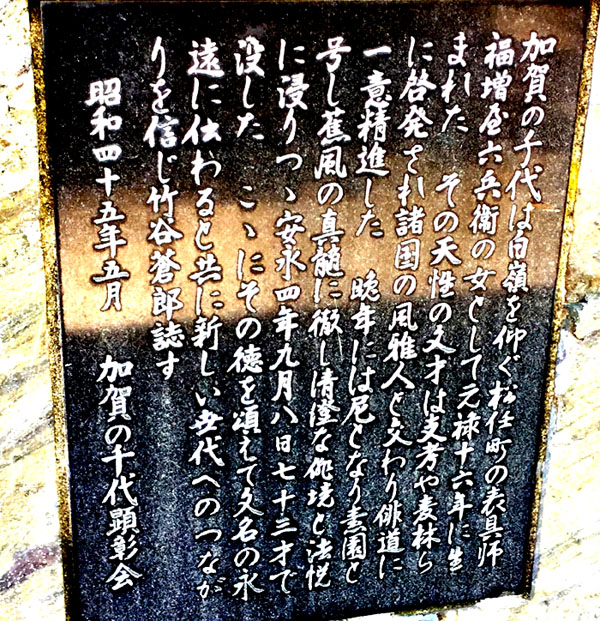 加賀の千代は白嶺を仰ぐ松任町の表具師
福増屋六兵衛の女として元禄十六年に生
まれた その天性の文才は支考や麦林ら
に啓発され諸国の風雅人と交わり俳道に
一意精進した 晩年には尼となり素園と
号し蕉風の真髄に徹し清澄な俳境と法悦
に浸りつゝ安永四年九月八日七十三才で
没した こゝにその徳を頌えて文名の永
遠に伝わると共に新しい世代へのつなが
りを信じ竹谷蒼郎誌す
昭和四十五年五月 加賀の千代顕彰会